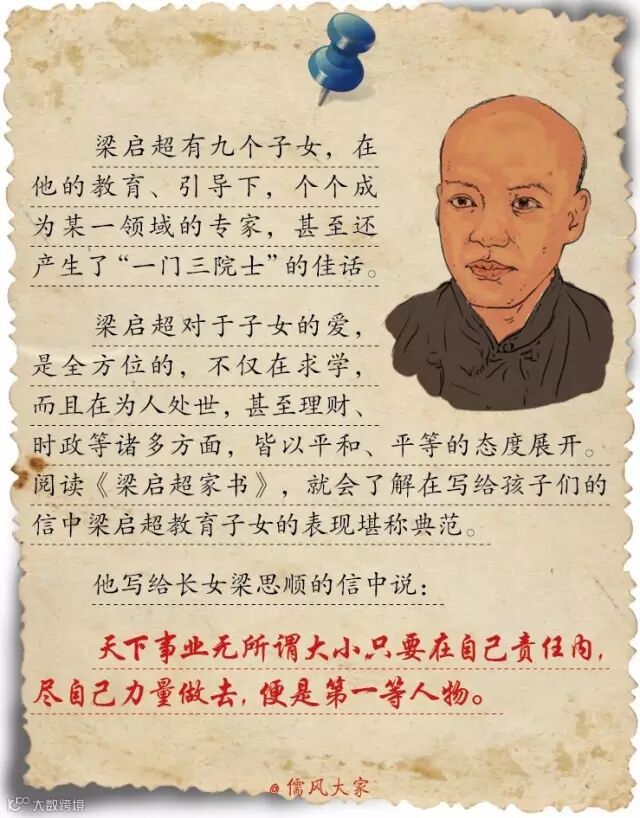 梁启超有九个子女，在
他的教育、引导下，个个成
为某一领域的专家，甚至还
产生了“一门三院士”的佳话。
梁启超对于子女的爱，
是全方位的，不仅在求学，
而且在为人处世，甚至理财、
时政等诸多方面，皆以平和、平等的态度展开。
阅读《梁启超家书》，就会了解在写给孩子们的
信中梁启超教育子女的表现堪称典范。
他写给长女梁思顺的信中说：
天下事业无所谓大小，只要在自己责任内，
尽自己力量做去，便是第一等人物。
@儒风大家
大数跨境